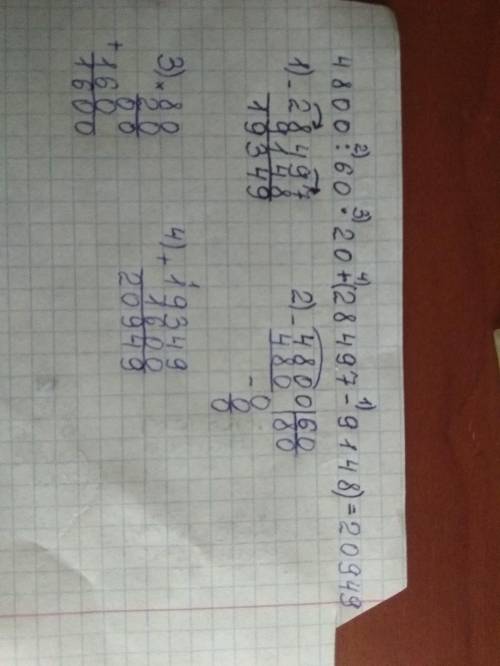 4800:60·20+(28497-9148)=20949
2) 3) 4) 1)
1) - 28497
9148
19349
2) - 4800|60
480 |80
- 0
0
0
3) × 80
20
+ 00
160
1600
4) + 19349
1600
20949